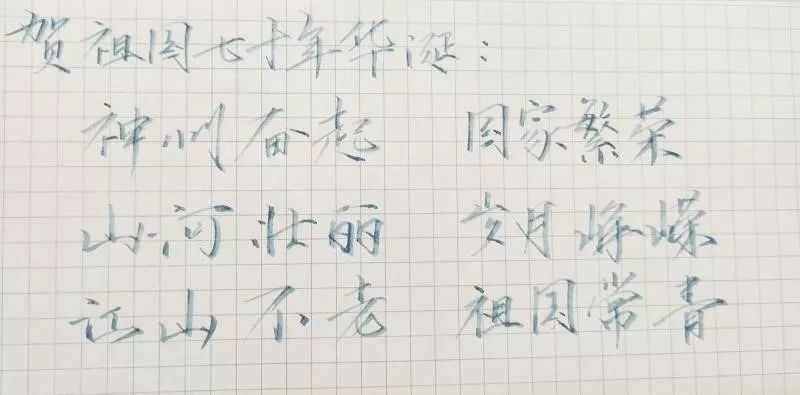 贺祖国七十年华诞：
神州奋起 国家繁荣
山河壮丽 岁月峥嵘
江山不老 祖国常青